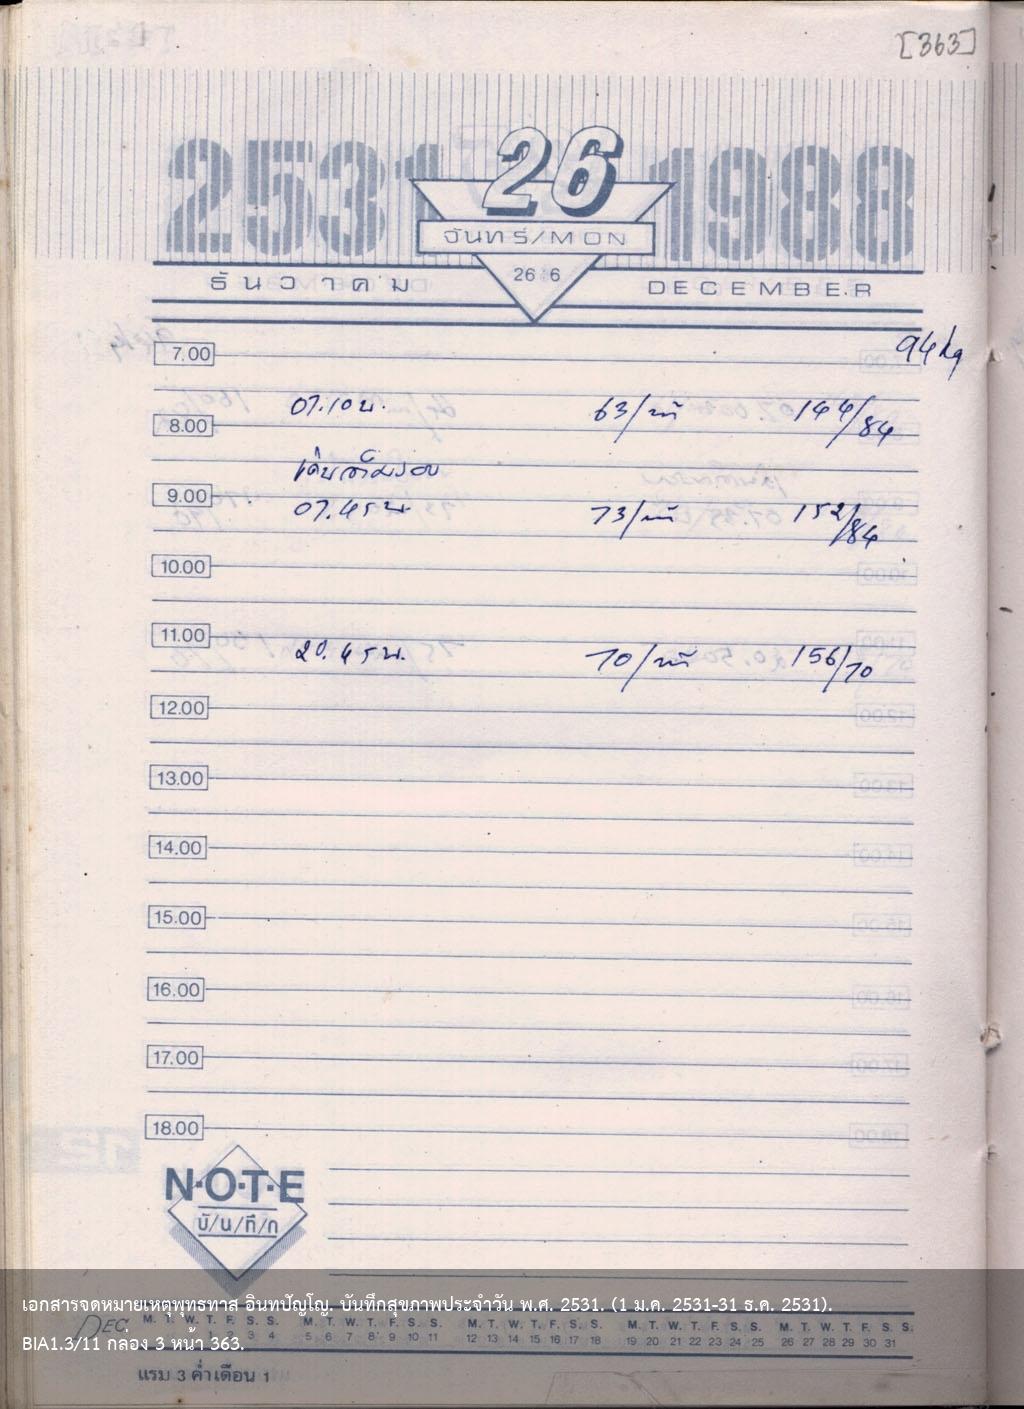 [363]
2531 26 1988
จันทร์/MON
26 6
ธันวาคม DECEMBER
94 kg
7.00
07.10 น. 63/นาที 144/84
8.00
เดินเต็มรอบ
9.00
07.45 น 73/นาที 152/84
10.00
11.00
20.45 น. 70/นาที 156/70
12.00
13.00
14.00
15.00
16.00
17.00
18.00
N·O·T·E
บั/น/ทึ/ก
เอกสารจดหมายเหตุพุทธทาส อินทปัญโญ. บันทึกสุขภาพประจำวัน พ.ศ. 2531. (1 ม.ค. 2531-31 ธ.ค. 2531).
DEC. M. T. W. T. F. S. S. M. T. W. T. F. S. S. M. T. W. T. F. S. S. M. T. W. T. F. S. S. M. T. W. T. F. S. S.
1 2 3 4 5 6 7 8 9 10 11 12 13 14 15 16 17 18 19 20 21 22 23 24 25 26 27 28 29 30 31
BIA1.3/11 กล่อง 3 หน้า 363.
แรม 3 ค่ำ เดือน 1